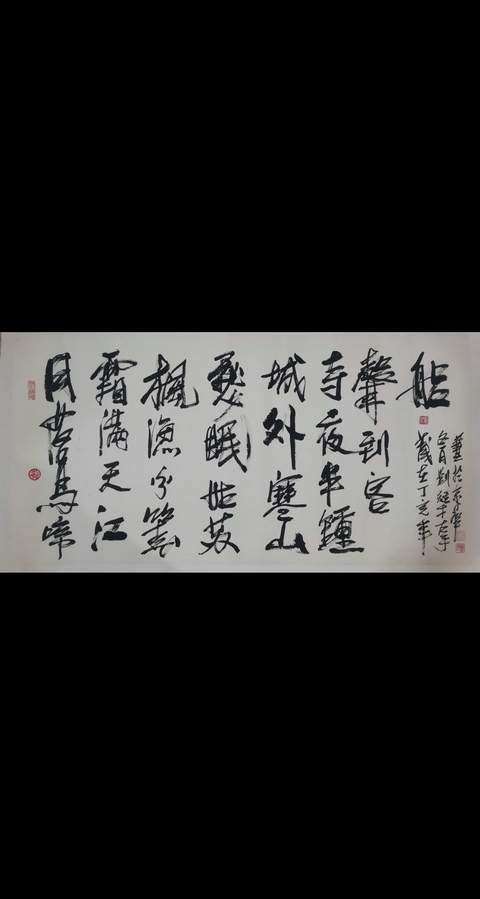 月落烏啼
霜滿天江
楓漁火對
愁眠姑蘇
城外寒山
寺夜半鐘
聲到客
船
歲在丁亥年
左手
書於京華